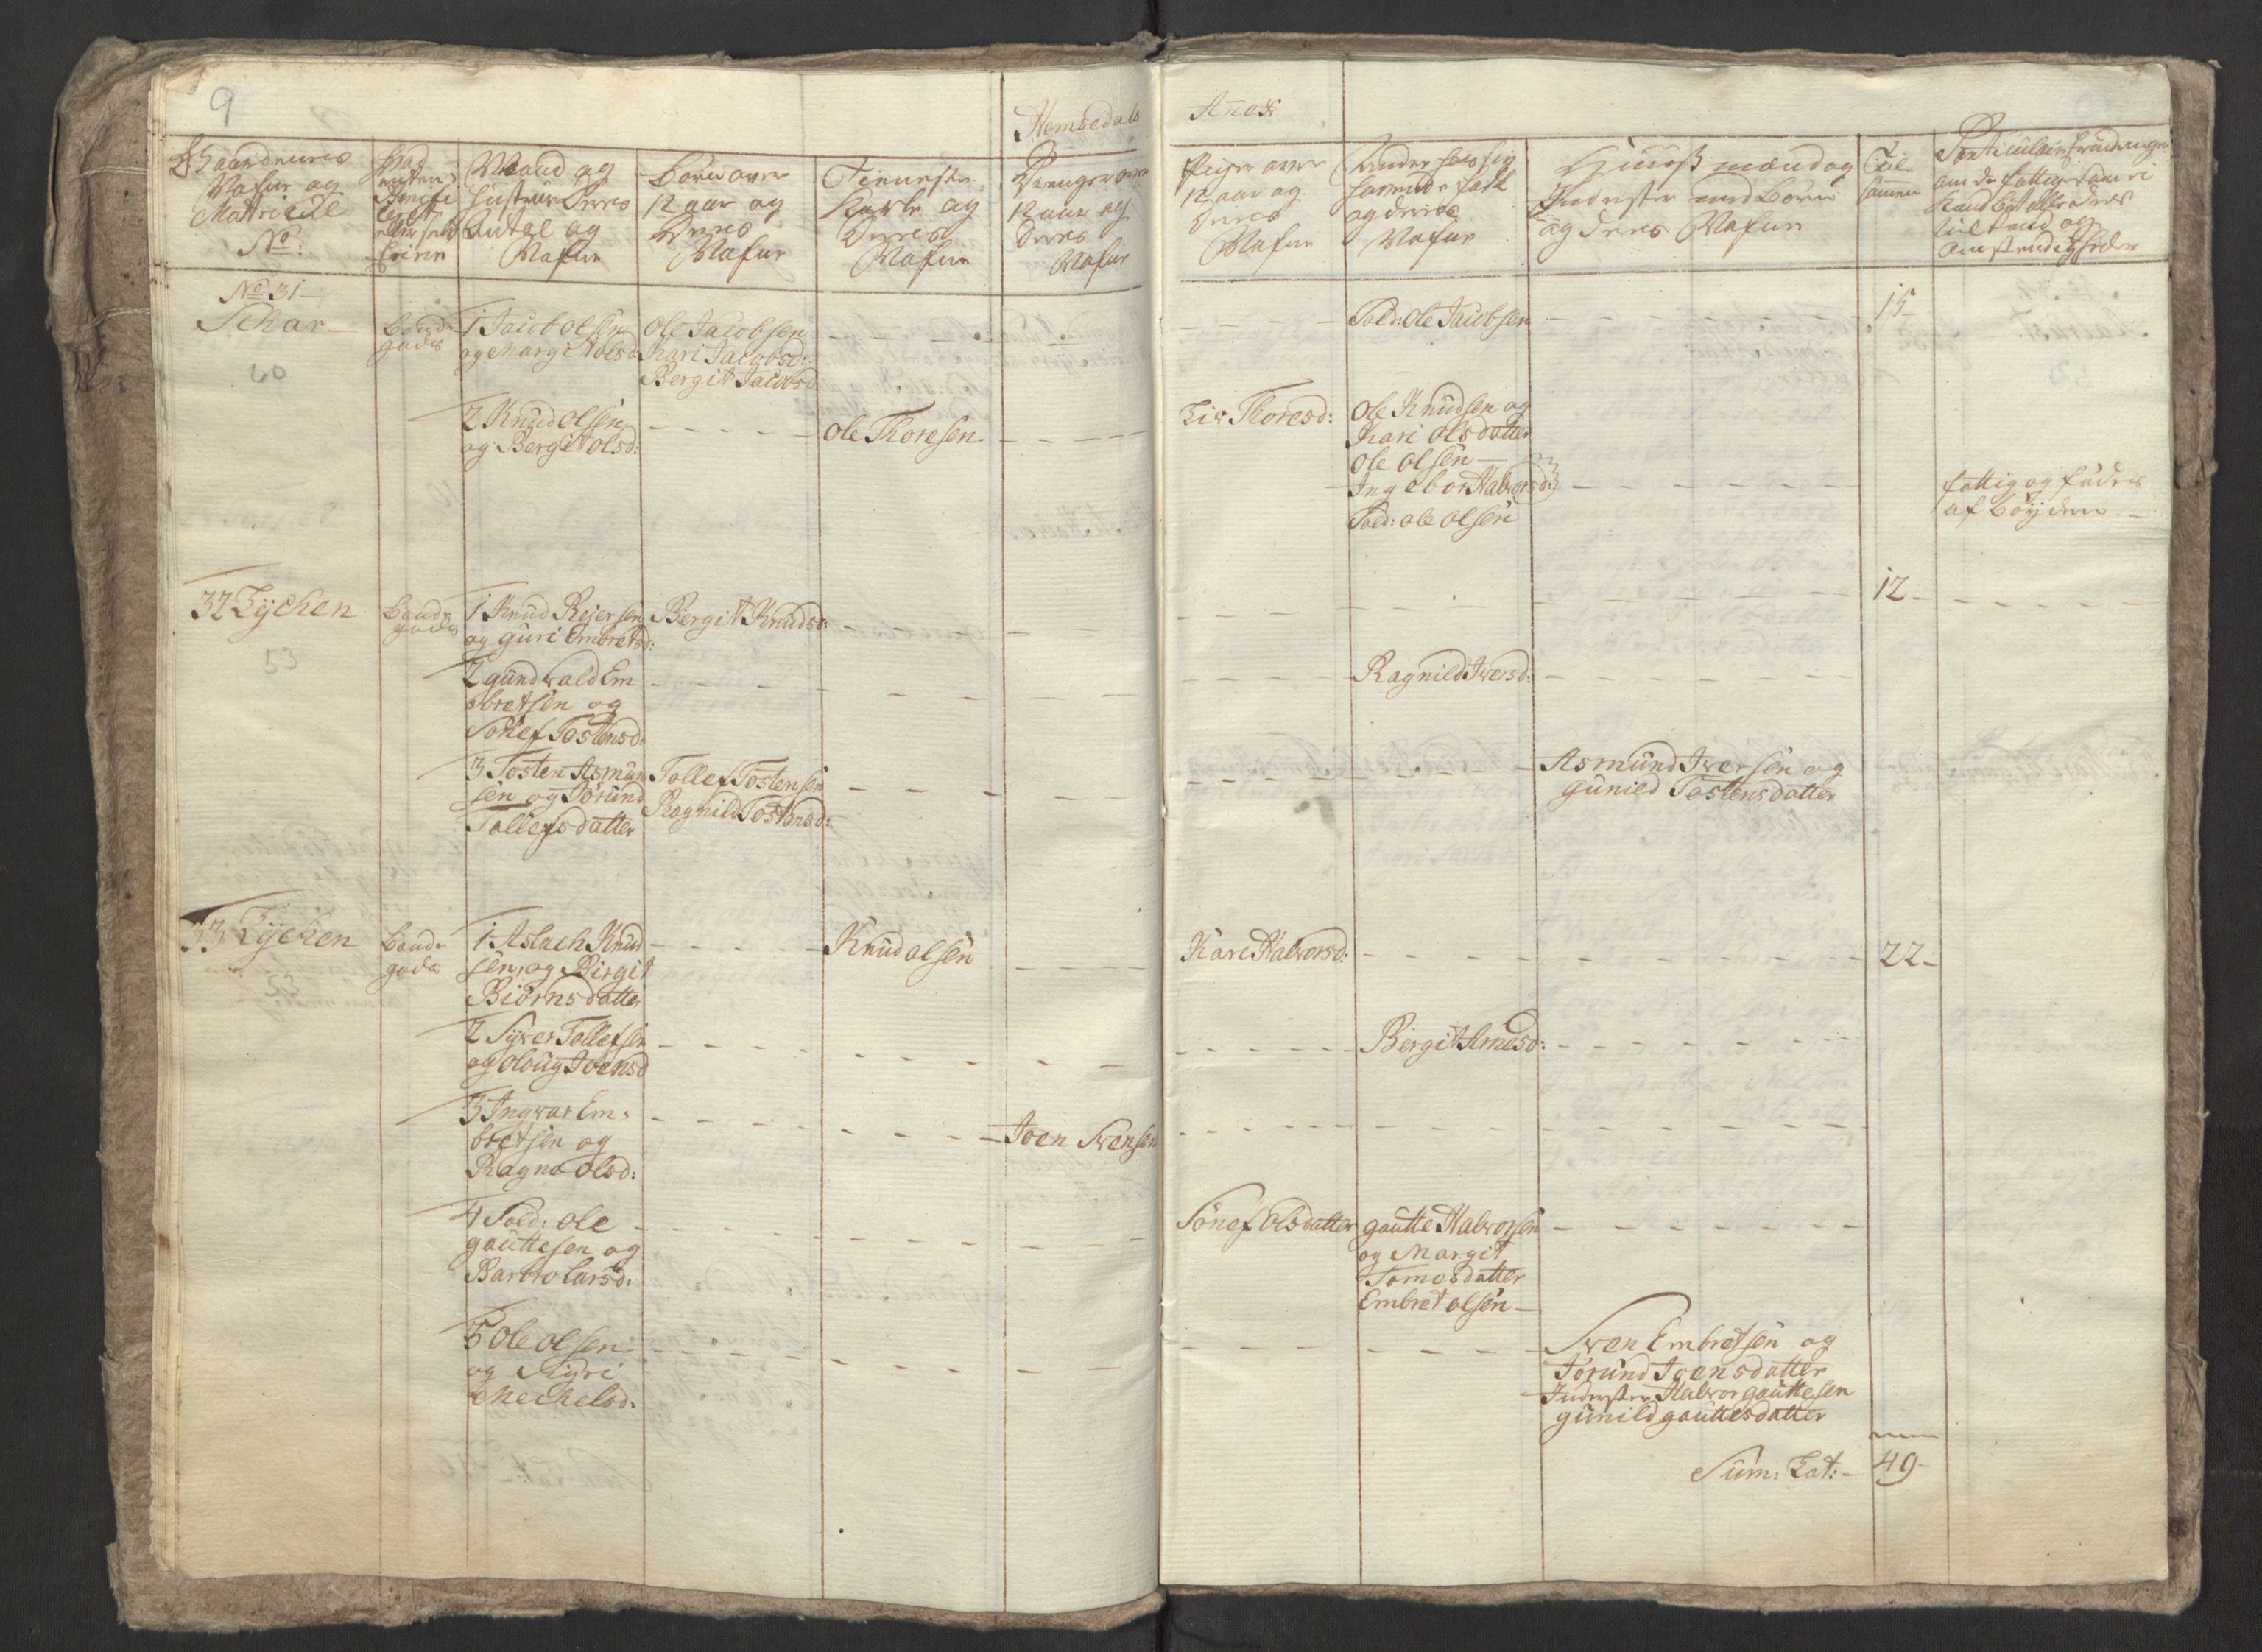 9
Hemsedals
Annox
Gaardenes
Nafne og
Matricul
No:
Mand og
Hustruer deres
Antal og
Nafne
Börn over
12 aar og
Deres
Nafne
Tieneste
Karle og
Deres
Nafne
Drenger over
12 aar og
deres
Nafne
Piger over
12 aar og
Deres
Nafne
og deres
Nafne
Huusmænd og
Inderster med Börn
og deres Nafne
Til
samen
No 31
Schar
60
Bonde
gods
1 Jacob olsen
og Margit olsd:
Ole Jacobsen
Kari Jacobsd:
Bergit Jacobsd
Sold: Ole Jacobsen
15
2 Knud olsen
og Bergit olsd:
Ole Thoresen
Liv Thoresd:
Ole Knudsen og
Kari olsdatter
Ole olsen
Ingebor Halvorsd:
Sold: ole olsen
fattig og födes
af böyden
32 Lycken
53
Bonde
gods
1 Knud Rejersen
og Guri Embretsd:
Bergit Knudsd:
12
2 Gundvald Em
bretsen og
Sönef Tostensd:
Ragnild Iversd:
3 Tosten Asmun
sen og Jörund
Tollefsdatter
Tollef Tostensen
Ragnild Tostensd:
Asmund Iversen og
Gunild Tostensdatter
33 Lycken
53
Bonde
gods
1 Aslach Knud
sen, og Birgit
Biörnsdatter
Knud olsen
Kari Halvorsd:
22
2 Syver Tollefsen
og Oloug Joensd
Bergit Arnesd:
3 Ingvar Em,
bretsen og
Ragne olsd:
Joen Svensen
4 Sold: Ole
Gouttesen og
Barbro Larsd:
Sönef Olsdatter
Goutte Halvorsen
og Margit
Tomosdatter
Embret olsen
5 Ole olsen
og Siyri
Mechelsd:
Sven Embretsen og
Jörund Joensdatter
Inderster Halvor Gouttesen
Gunild Gouttesdatter
Sum: Lat: 49